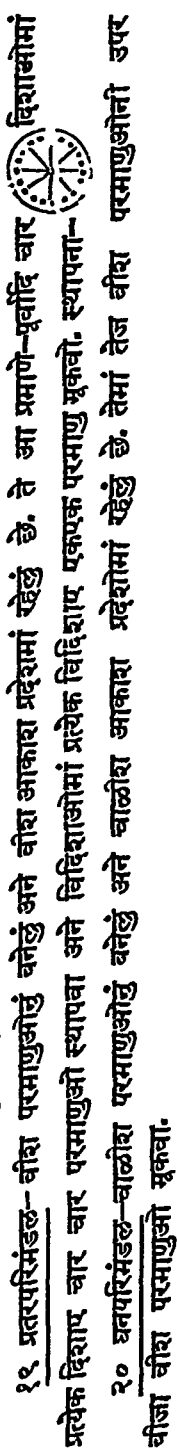 १९ प्रतरपरिमंडल–वीश परमाणुओनुं बनेलुं अने वीश आकाश प्रदेशमां रहेलुं छे. ते आ प्रमाणे–पूर्वादि चार दिशाओमां
प्रत्येक दिशाए चार चार परमाणुओ स्थापवा अने विदिशाओमां प्रत्येक विदिशाए एकएक परमाणु मूकवो. स्थापना–
२० घनपरिमंडल–चाळीश परमाणुओनुं बनेलुं अने चाळीश आकाश प्रदेशोमां रहेलुं छे. तेमां तेज वीश परमाणुओनी उपर
बीजा वीश परमाणुओ मूकवा.